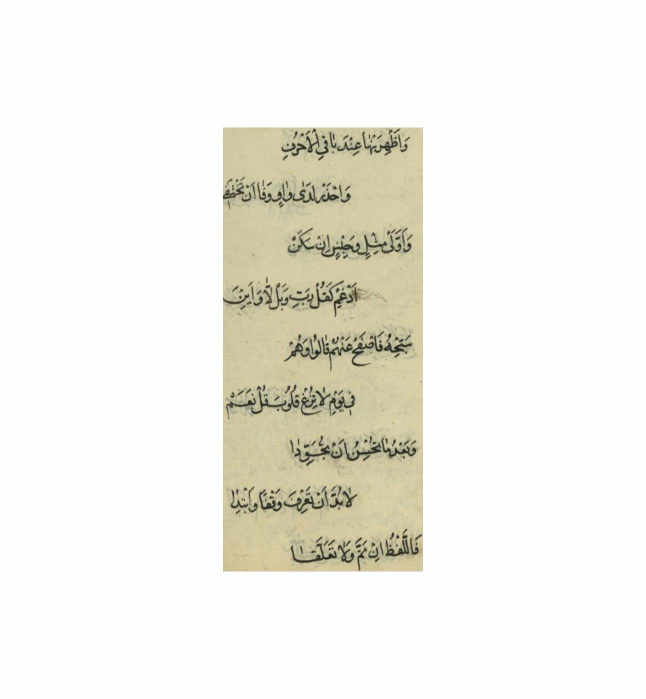 وَأَظْهِرَنْهَا عِنْدَ بَاقِي الْأَحْرُفِ
وَاحْذَرْ لَدَى وَاوٍ وَفَا أَنْ تَخْتَفِي
وَأَوَّلَيْ مِثْلٍ وَجِنْسٍ إِنْ سَكَنْ
أَدْغِمْ كَقُلْ رَبِّ وَبَل لَّا وَأَبِنْ
سَبِّحْهُ فَاصْفَحْ عَنْهُمْ قَالُوا وَهُمْ
فِي يَوْمِ لَا تُزِغْ قُلُوبَ قُلْ نَعَمْ
وَبَعْدَ مَا تُحْسِنُ أَنْ تُجَوِّدَا
لَا بُدَّ أَنْ تَعْرِفَ وَقْفًا وَابْتِدَا
فَاللَّفْظُ إِنْ تَمَّ وَلَا تَعَلُّقَا